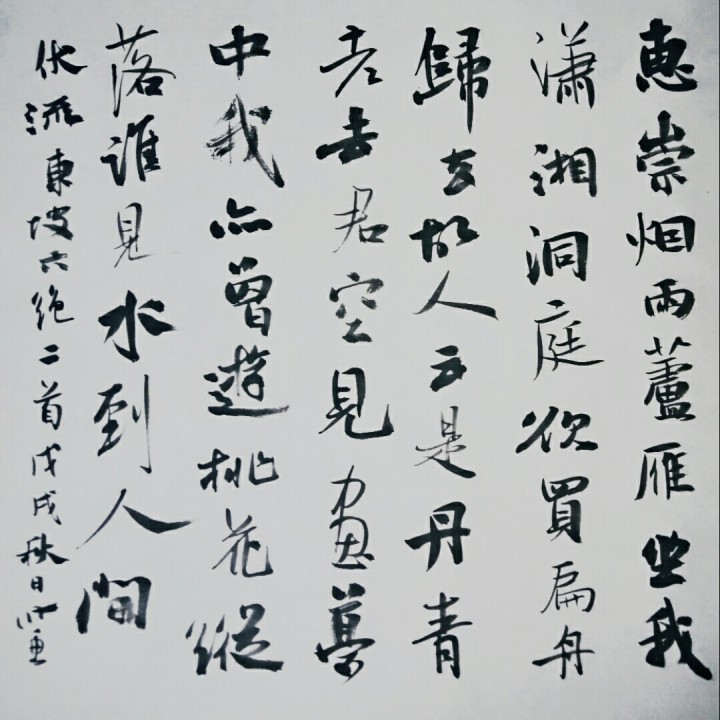 惠崇烟雨蘆雁坐我
潇湘洞庭欲買扁舟
歸去故人云是丹青
老去君空見畫夢
中我亦曾遊桃花縱
落誰見水到人間
伏流東坡六絕二首戊戌秋日